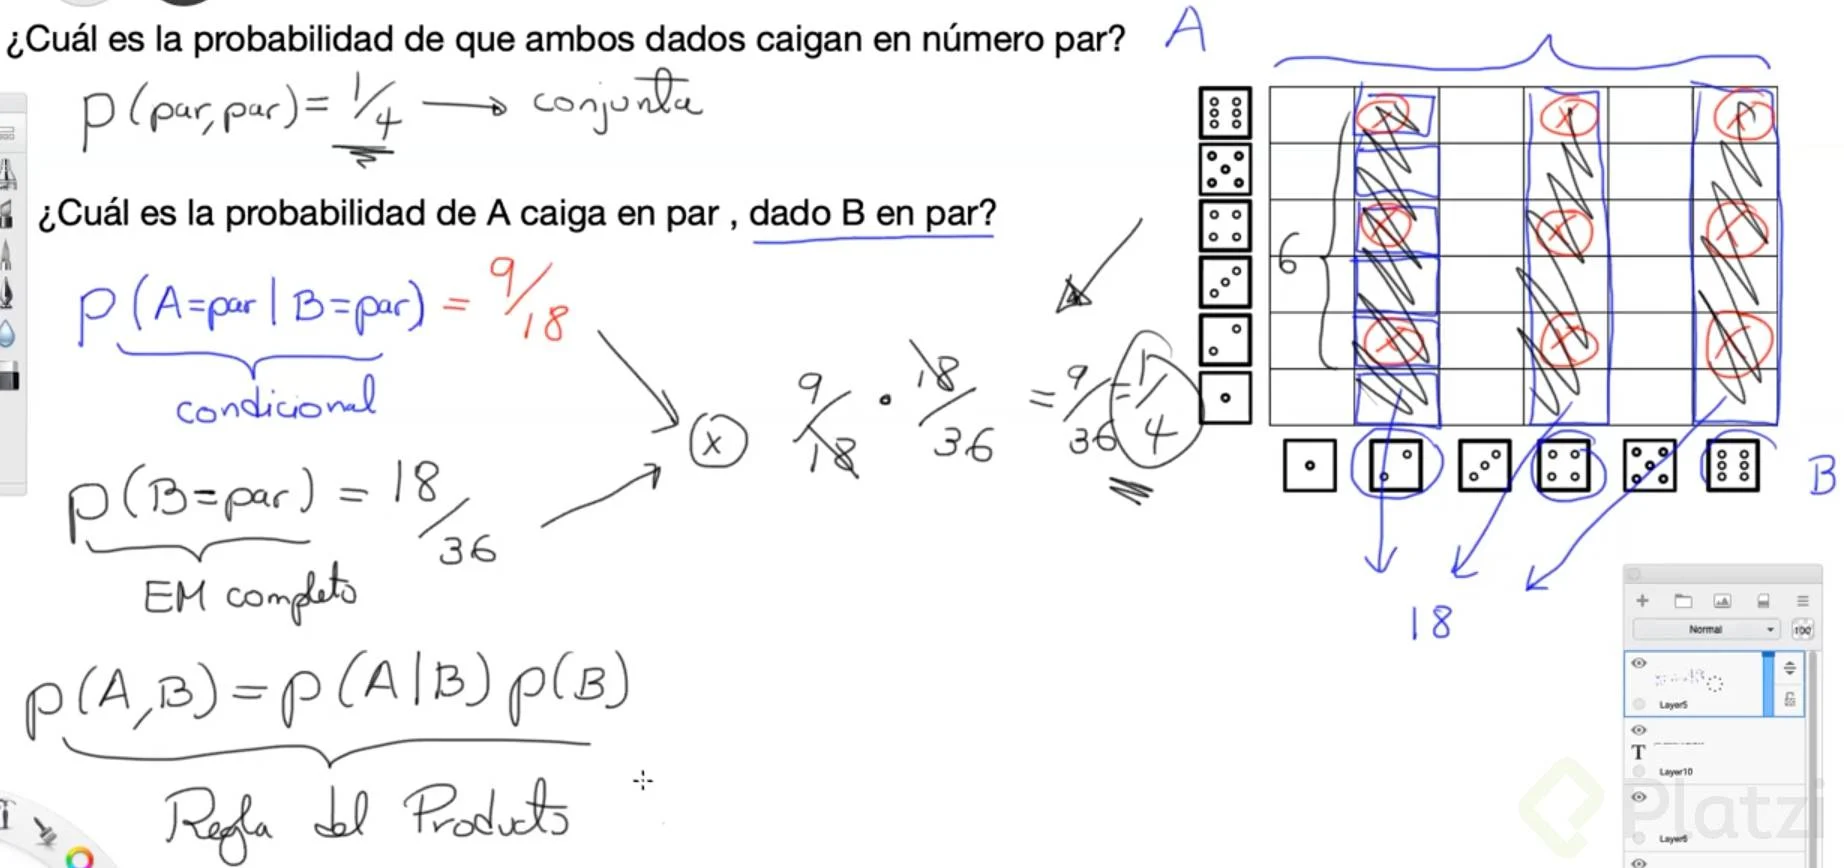 ¿Cuál es la probabilidad de que ambos dados caigan en número par?
A
P(par, par) = 1/4 → conjunta
¿Cuál es la probabilidad de A caiga en par , dado B en par?
P(A=par | B=par) = 9/18
condicional
6
x 9/18 · 18/36 = 9/36 = 1/4
P(B=par) = 18/36
EM completo
B
18
P(A,B) = P(A|B) P(B)
Regla del Producto
Normal
100
Layer5
T
Layer10
Layer6
Platzi